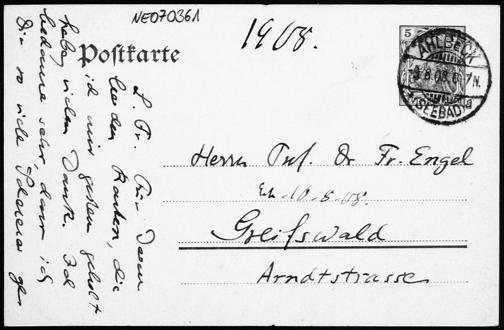 NE070361
1908.
Postkarte
5
AHLBECK
.8.08.6-7N.
(SEEBAD)
Herrn Prof. Dr Fr. Engel
Erh. 10.8.08.
Greifswald
Arndtstrasse
L. Fr. Für Deine
beiden Karten, die
ich mir gestern geholt
habe, vielen Dank. Ich
bedaure sehr, dass ich
Dir so viele Schererei